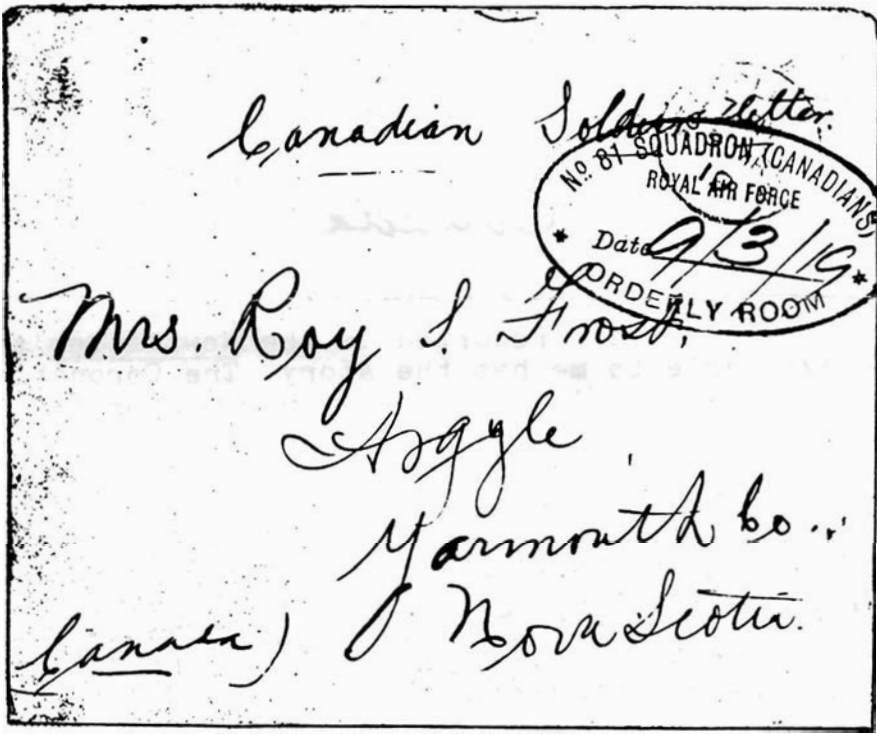 Canadian Soldiers letter.
No. 81 SQUADRON (CANADIANS)
ROYAL AIR FORCE
Date 9/3/19
ORDERLY ROOM
Mrs Roy S. Frost,
Argyle
Yarmouth Co..
Nova Scotia.
Canada)